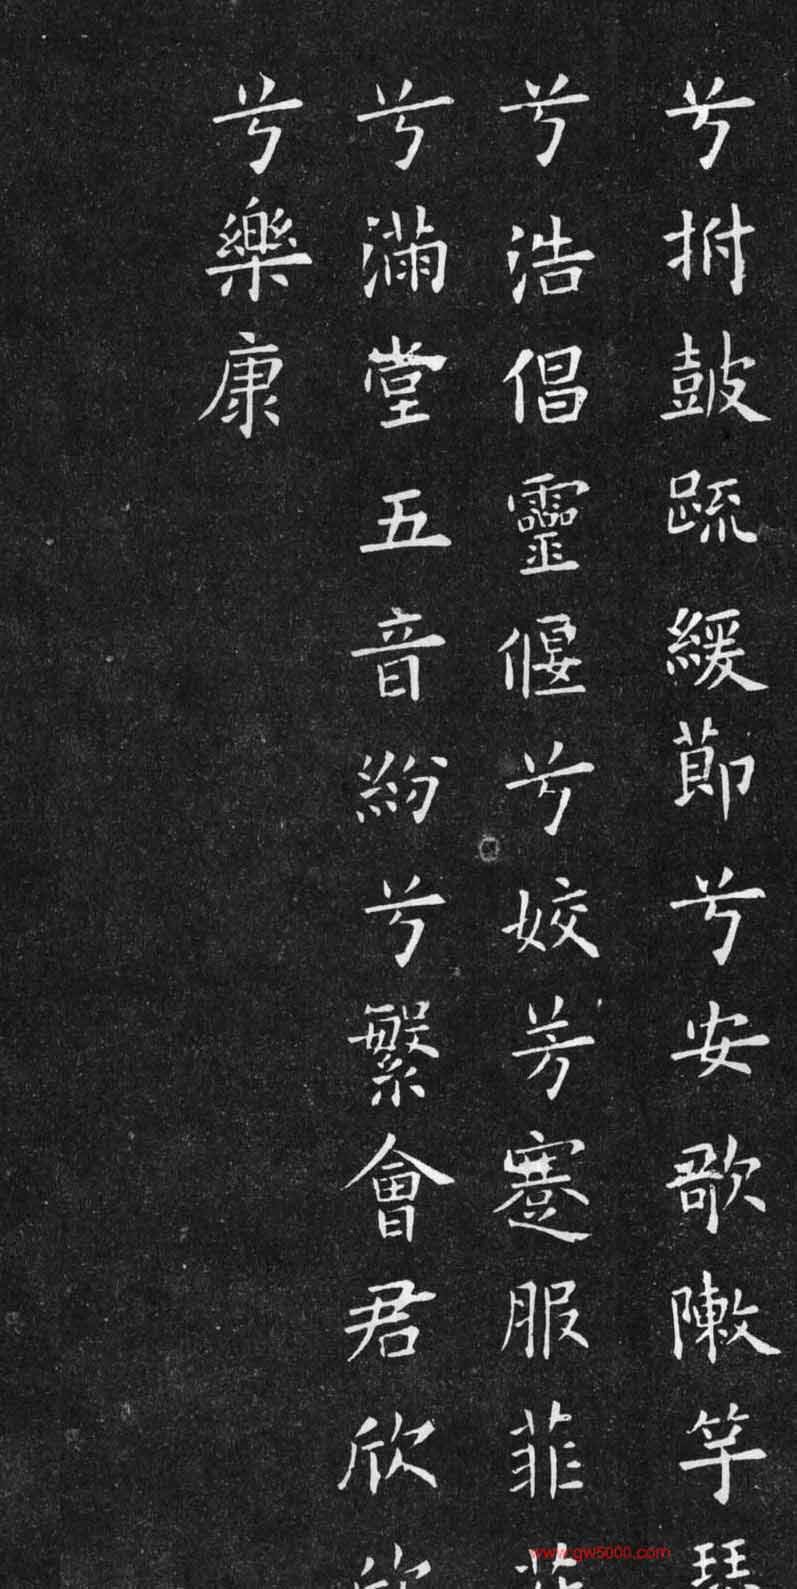 兮拊鼓疏緩節兮安歌陳竽瑟
兮浩倡靈偃兮姣芳蹇服菲菲
兮滿堂五音紛兮繁會君欣欣
兮樂康
www.gw5000.com